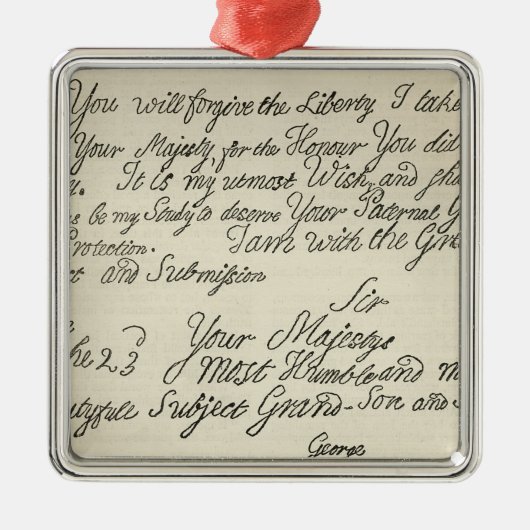 You will forgive the Liberty I take
Your Majesty, for the Honour You did
y. It is my utmost Wish, and sha
s be my Study to deserve Your Paternal G
Protection. I am with the Gre
ct and Submission
Sir
Your Majestys
he 23
Most Humble and m
utyfull Subject Grand-Son and
George